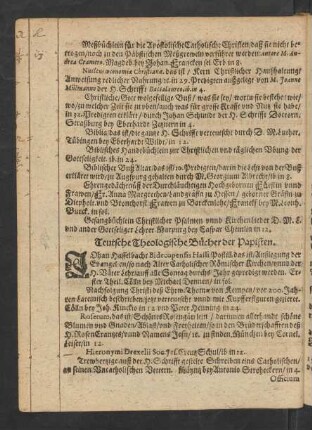 Meßbüchlein für die Apostolische Catholische Christen, daß sie nicht be-
trogen, noch zu den Päbstischen Meßgreweln verführet werden. autore An-
drea Cramero. Magdeb bey Johan. Francken sel Erb in 8.
Nucleus œconomiæ Christianæ. das ist / Kern Christlicher Haußhaltung/
Anweisung redlicher Nahrung/ in 29. Predigten außgelegt von M. Joanne
der H. Schrifft in 4.
Christliche/ Gott wolgefellige Buß/ was sie sey/ worin sie bestehe/ wie/
wo/ zu welcher Zeit sie zu thun/ auch was für grosse Krafft und Nutz sie habe/
in Predigten erklärt/ durch Johan Schmidt der H. Schrifft Doctorn.
Straßburg bey Eberhardt Zeznern in 4.
Biblia/ das ist/ die gantze H. Schrifft verteutscht durch D. M. Luther.
Tübingen bey Eberhardt Wilde, in 12.
Biblisches Handbüchlein zur Christlichen und täglichen Übung der
Gottseligkeit. ib. in 24.
Biblischer Buß Altar/ das ist/
erklärt werden/ gehalten durch M. Georgium Albrecht/ ib in 8.
Ehrengedächtnuß der Durchläuchtigen Hochgebornen Fürstin und
Frawen/ Fr. Anna Margrethen/ Landgräfin zu Hessen/ geborner Gräfin zu
Diepholt und Bronchorst/ Frawen zu Borckenlohe/ Franckf. bey
in fol.
Gesangbüchlein Christlicher Psalmen und Kirchenlieder D. M. L.
und ander Gottseliger Lehrer. Leipzig bey Caspar in 12.
Teutsche Theologische Bücher der Papisten.
JOhan Hasselbachii Postill/ das ist/ Außlegung der
Evangelien/ so nach Alter Catholischer Römischer Kirchen und der
H. Väter Lehr auff alle Sontag durchs Jahr gepredigt werden. Er-
ster Theil. Cölln bey Michael Demen/ in fol.
Nachfolgung Christi deß Ehrw. Thomæ von Kempen/ vor 200. Jah-
ren Lateinisch beschrieben/ jetzt verteutscht und mit Kupfferfiguren gezieret.
Cölln bey Joh. Kinckio in 12 und Peter Henning in 24.
Rosenato, das ist/ Schönes Rosengärtlein/ darinnen allerhandt schöne
Blumen und Gnaden/ Ablaß/ und Freyheiten/ so in den Bruderschafften deß
H. Rosen Crantzes/ und Namens Jesu/ rc. zu finden. München bey Cornel.
Leiser/ in 12.
Hieronymi Drexelii Soc. Jesu Creutz Schul/ ib in 12.
Trewhertzige auß der H. Schrifft gestelte Schreiben eins Catholischen/
an seinen Uncatholischen Vettern. bey Antonio in 4.
Officium